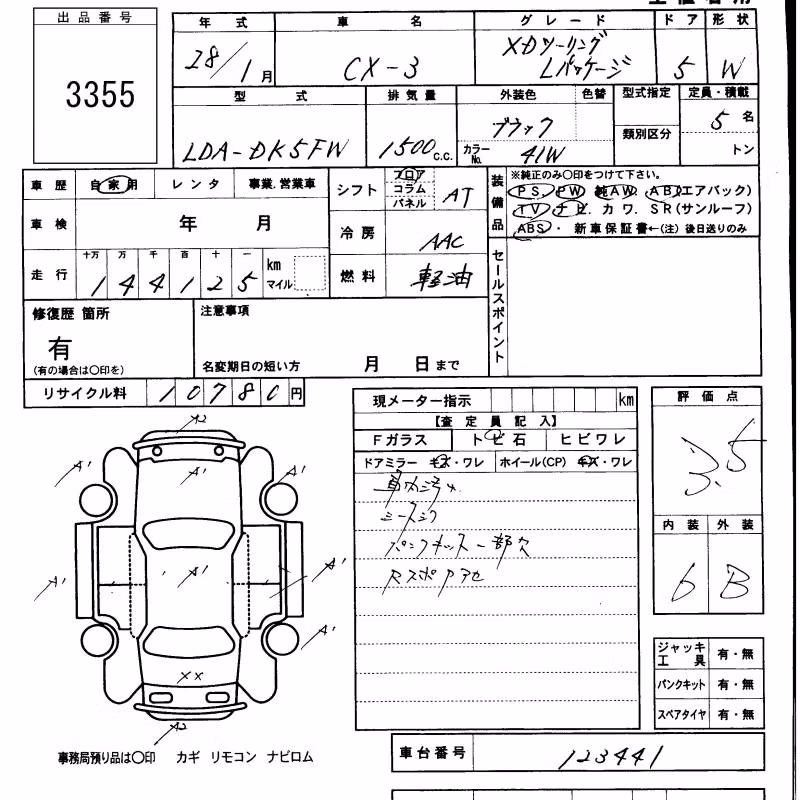 出品番号
3355
年式 車名 グレード ドア 形状
28/1月 CX-3 XDツーリング Lパッケージ 5 W
型式 排気量 外装色 色替 型式指定 定員・積載
LDA-DK5FW 1500c.c. ブラック カラーNo. 41W 類別区分 5名 トン
車歴 自家用 レンタ 事業.営業車
シフト フロア コラム パネル AT
装備品 ※純正のみ〇印をつけて下さい。
PS. PW. 純AW. AB(エアバック)
TV. ナビ. カワ. SR(サンルーフ)
ABS・新車保証書←(注)後日送りのみ
車検 年 月
冷房 AAC
走行 十万 万 千 百 十 一
144125 km マイル
燃料 軽油
セールスポイント
修復歴 箇所
有
(有の場合は〇印を)
注意事項
名変期日の短い方 月 日まで
リサイクル料 10780円
現メーター指示 km
【査定員記入】
Fガラス トビ石 ヒビワレ
ドアミラー キズ・ワレ ホイール(CP) キズ・ワレ
車内汚れ
シートスレ
パンクキット一部欠
評価点
3.5
内装 外装
6 B
A2
A' A'
A' A' A'
A'
XX
A2
ジャッキ工具 有・無
パンクキット 有・無
スペアタイヤ 有・無
事務局預り品は〇印 カギ リモコン ナビロム
車台番号 123441